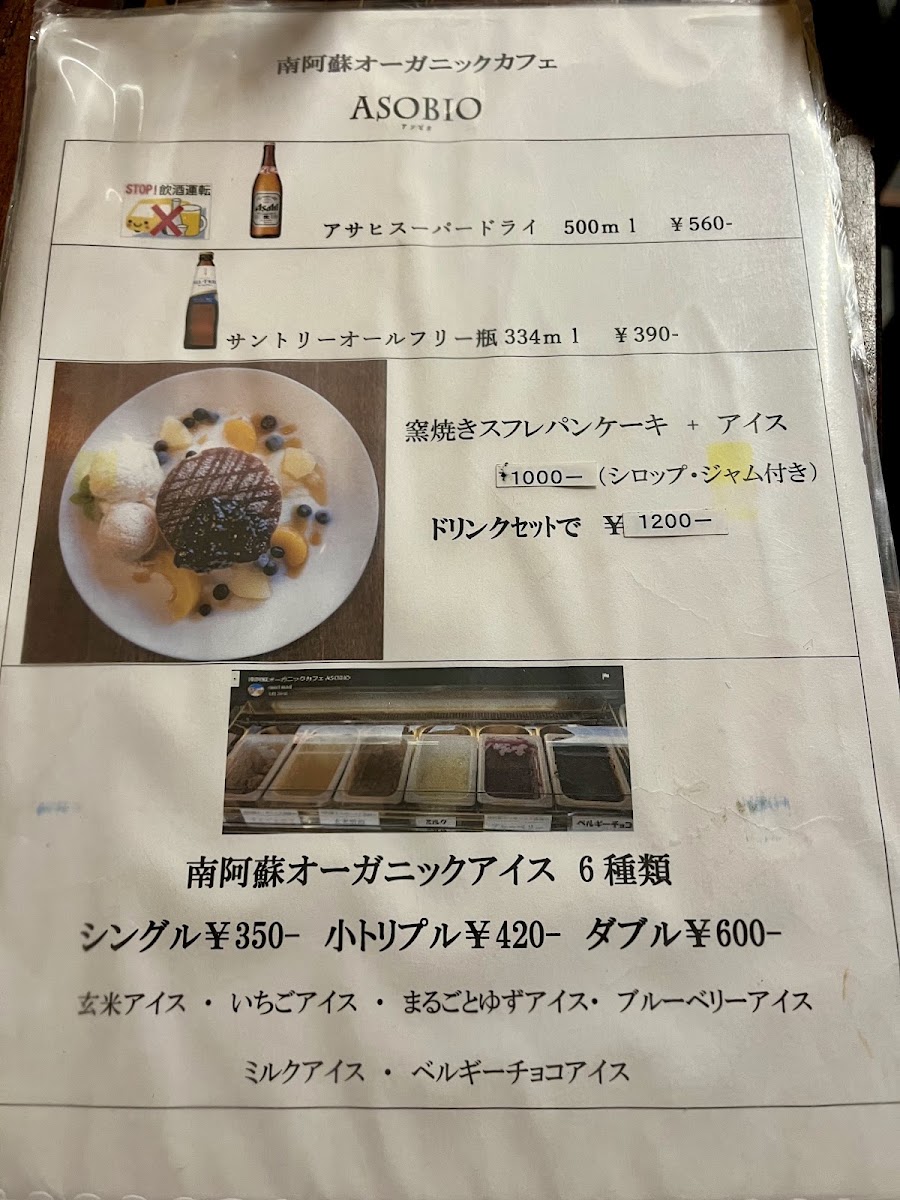 南阿蘇オーガニックカフェ
ASOBIO
アソビオ
STOP!飲酒運転
Asahi
アサヒスーパードライ 500ml ¥560-
サントリーオールフリー瓶334ml ¥390-
窯焼きスフレパンケーキ + アイス
¥1000−(シロップ・ジャム付き)
ドリンクセットで ¥1200−
南阿蘇オーガニックカフェ ASOBIO
ミルク
ブルーベリー
ベルギーチョコ
南阿蘇オーガニックアイス 6種類
シングル¥350- 小トリプル¥420- ダブル¥600-
玄米アイス ・ いちごアイス ・ まるごとゆずアイス・ ブルーベリーアイス
ミルクアイス ・ ベルギーチョコアイス